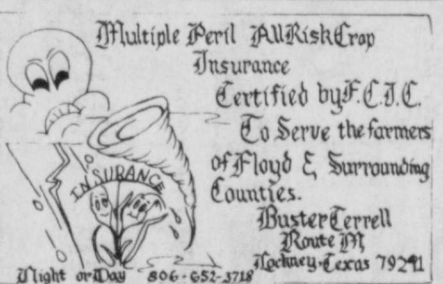 Multiple Peril All Risk Crop
Insurance
Certified by F.C.I.C.
To Serve the farmers
of Floyd & Surrounding
Counties.
INSURANCE
Buster Terrell
Route M
Lockney, Texas 79241
Night or Day 806-652-3718